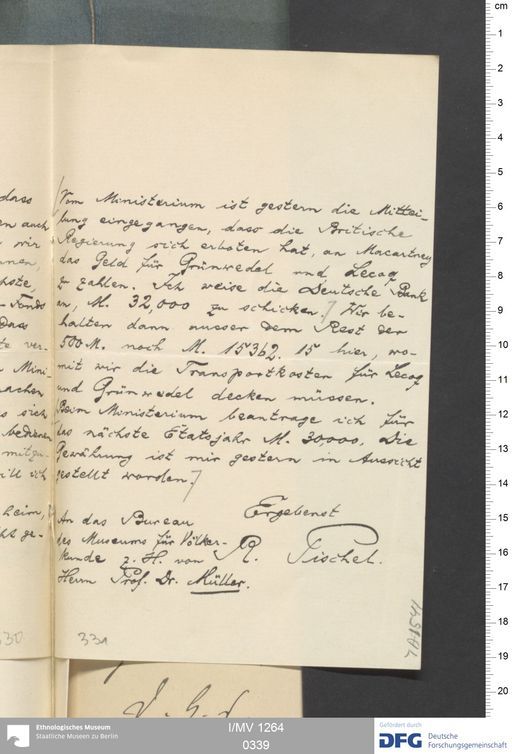 dass
en auch
wir
nnen,
chste,
- Fonds
dass
te ver-
n Mini-
machen
s sich
bedienen
mitzu-
will ich
heim,
ge-
330
Vom Ministerium ist gestern die Mittei-
lung eingegangen, dass die Britische
Regierung sich erboten hat, an Macartney
das Geld für Grünwedel und Lecoq
zu zahlen. Ich weise die Deutsche Bank
an, M. 32,000 zu schicken.] Wir be-
halten dann ausser dem Rest der
500 M. noch M. 15362.15 hier, wo-
mit wir die Transportkosten für Lecoq
und Grünwedel decken müssen.
Beim Ministerium beantrage ich für
das nächste Etatsjahr M. 30000. Die
Gewährung ist mir gestern in Aussicht
gestellt worden.]
Ergebenst
R. Pischel.
An das Bureau
des Museums für Völker-
kunde z. H. von
Herrn Prof. Dr. Müller.
331
cm
1
2
3
4
5
6
7
8
9
10
11
12
13
14
15
16
17
18
19
20
Ethnologisches Museum
Staatliche Museen zu Berlin
I/MV 1264
0339
Gefördert durch
DFG Deutsche
Forschungsgemeinschaft